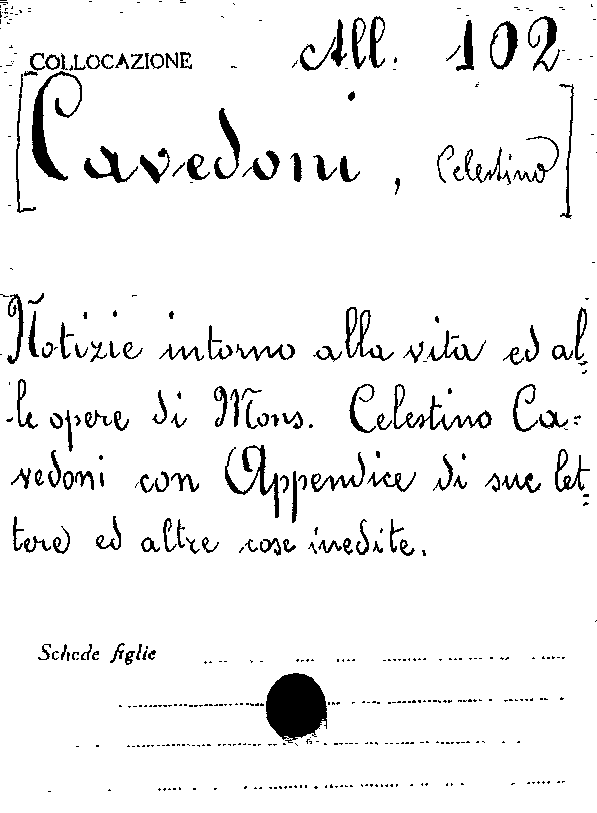 COLLOCAZIONE All. 102
[Cavedoni, Celestino]
Notizie intorno alla vita ed al=
le opere di Mons. Celestino Ca=
vedoni con Appendice di sue let=
tere ed altre cose inedite.
Schede figlie